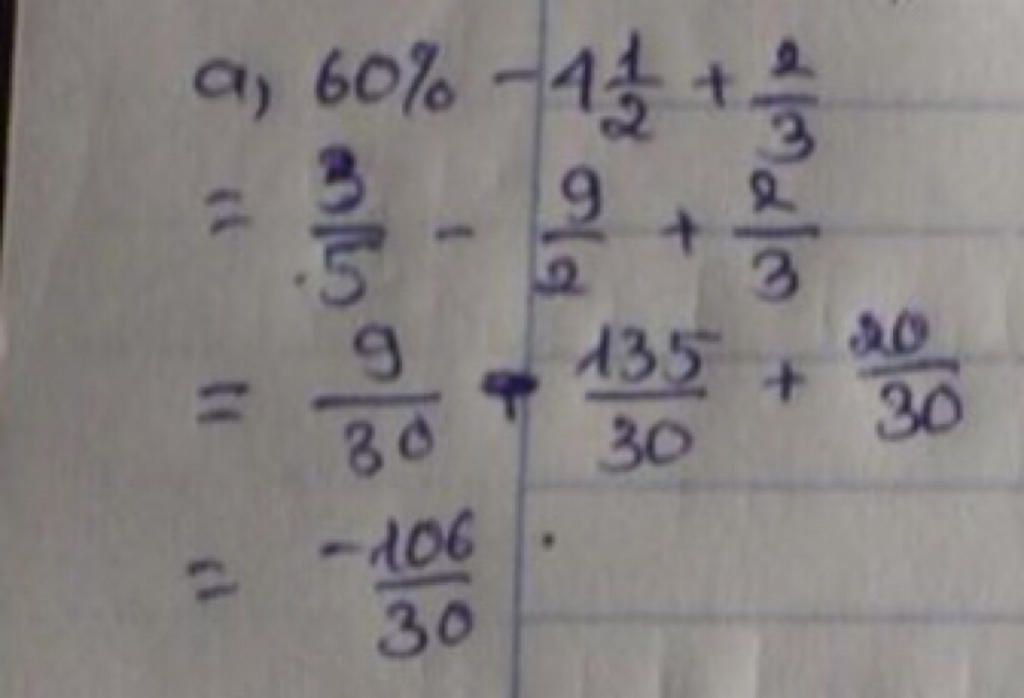 a, 60% - 1 1/2 + 2/3
= 3/5 - 9/2 + 2/3
= 9/30 - 135/30 + 20/30
= -106/30